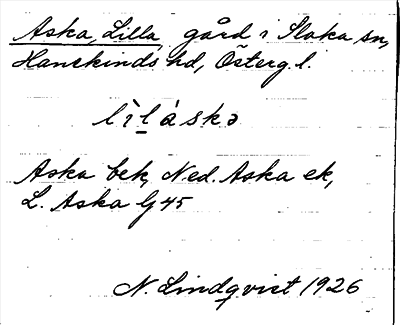 Aska, Lilla, gård i Slaka sn,
Hanekinds hd, Österg. l.
lìláskə
Aska bek, Ned. Aska ek,
L. Aska G 45
N. Lindqvist 1926